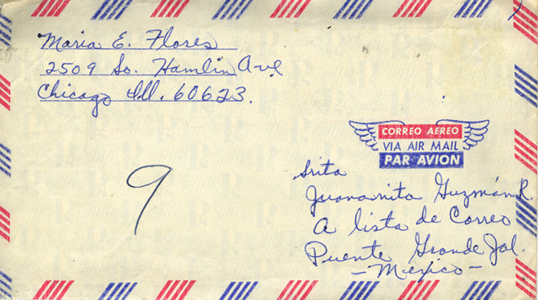 Maria E. Flores
2509 So. Hamlin Ave
Chicago Ill. 60623.
CORREO AEREO
VIA AIR MAIL
PAR AVION
9
Srita
Juananita Guzmán R.
A lista de Correo
Puente Grande Jal.
-Mexico-